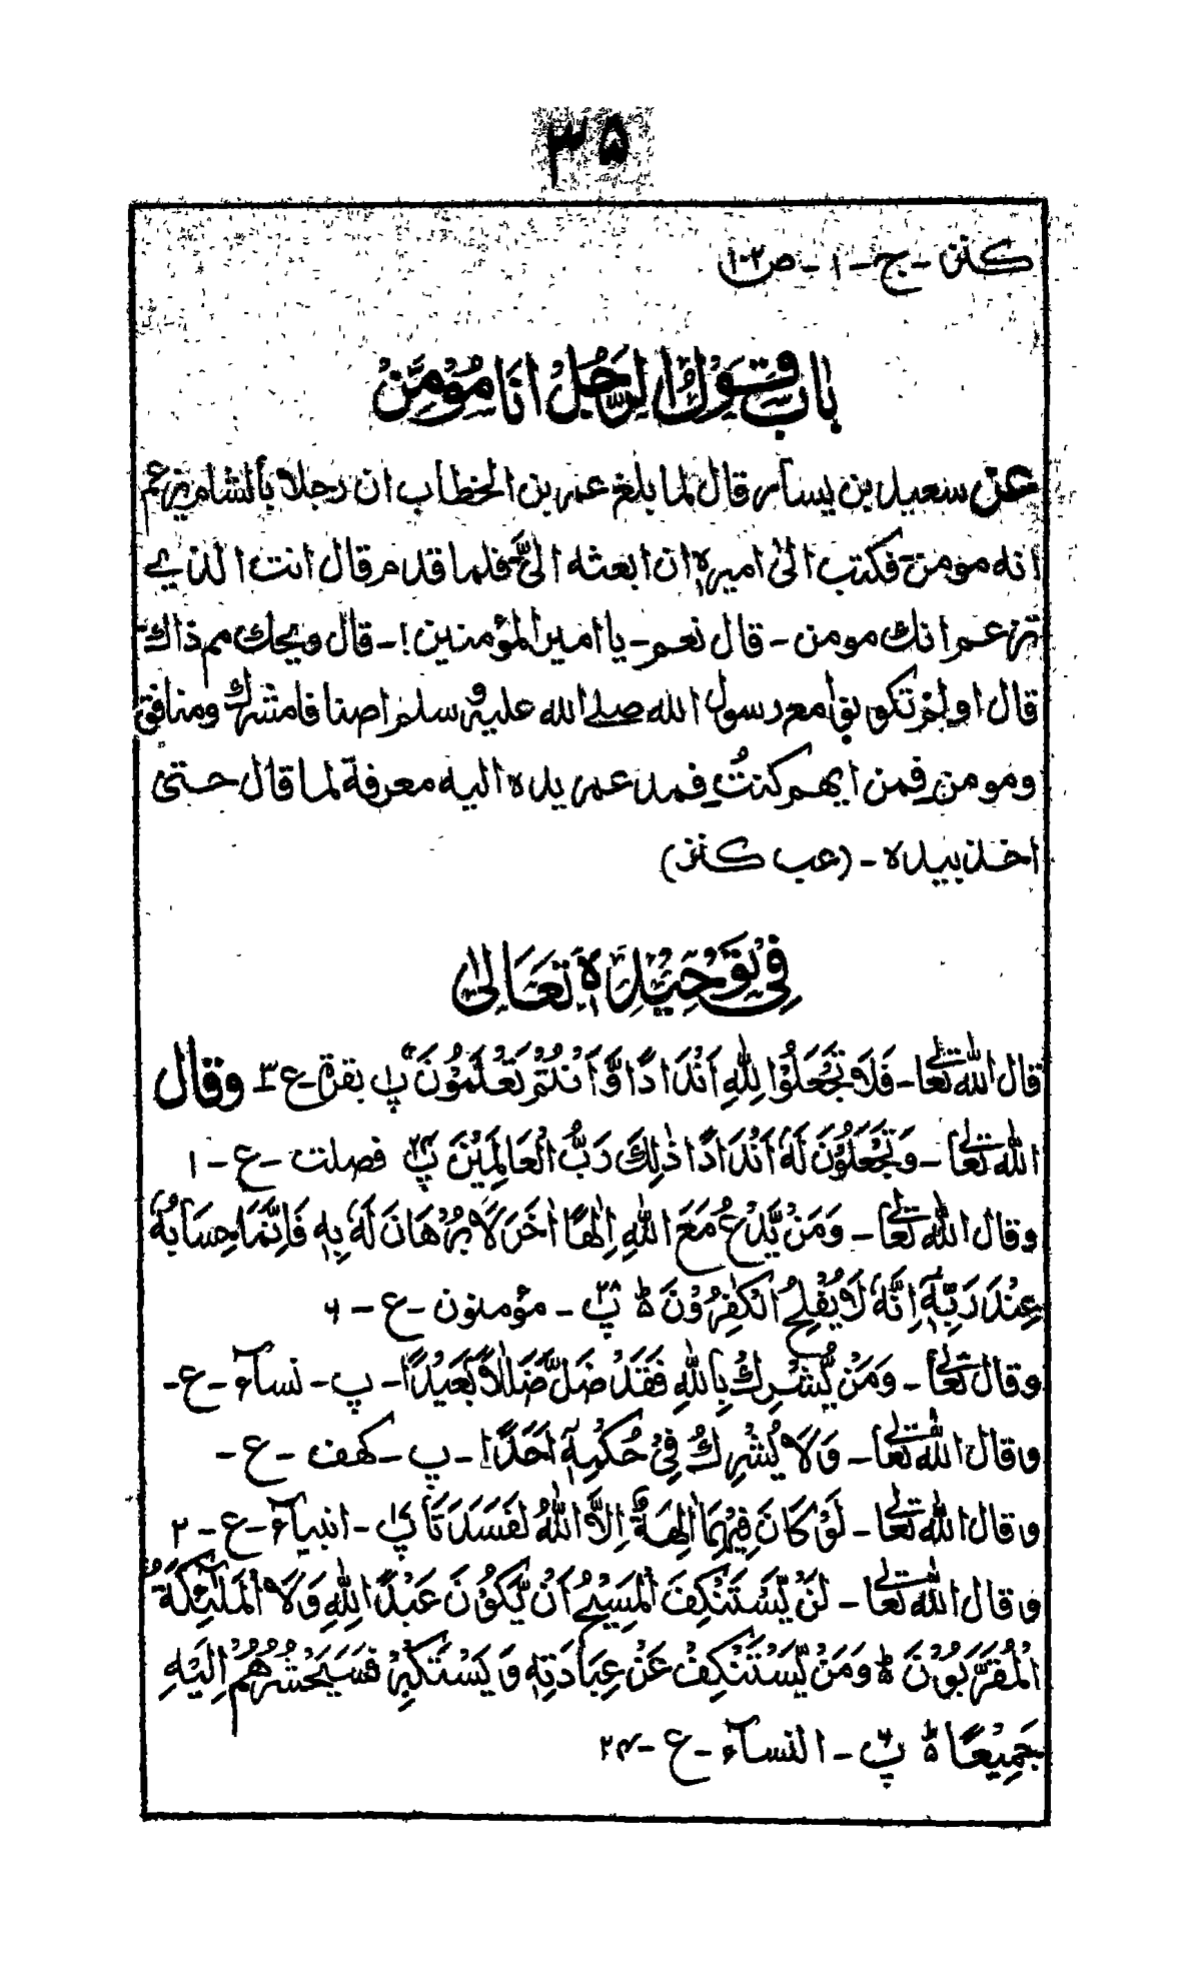 ۳۵
کنز - ج - ۱ - ص ۱۰۲
باب قول الرجل انا مؤمن
عن سعید بن یسار قال لما بلغ عمر بن الخطاب ان رجلا بالشام یزعم
انه مومن فکتب الیٰ امیره ان ابعثه الیّ فلما قدم قال انت الذی
تزعم انك مومن - قال نعم - یا امیر المؤمنین! - قال ویحك مم ذاك
قال اولم تکونوا مع رسول الله صلی الله علیه وسلم اصنافا مشرك ومنافق
ومومن فمن ایهم کنتُ فمد عمر یده الیه معرفة لما قال حتی
اخذ بیده - (عب کنز)
فِیْ تَوْحِیْدِهٖ تَعَالیٰ
قال الله تعالیٰ - فَلَا تَجْعَلُوْا لِلّٰهِ اَنْدَادًا وَّاَنْتُمْ تَعْلَمُوْنَ پ۱ بقرة - ع ۳ - وقال
الله تعالیٰ - وَتَجْعَلُوْنَ لَهٗ اَنْدَادًا ذٰلِكَ رَبُّ الْعَالَمِیْنَ پ۲۴ فصلت - ع - ۱
وقال الله تعالیٰ - وَمَنْ یَّدْعُ مَعَ اللهِ اِلٰهًا اٰخَرَ لَا بُرْهَانَ لَهٗ بِهٖ فَاِنَّمَا حِسَابُهٗ
عِنْدَ رَبِّهٖ اِنَّهٗ لَا یُفْلِحُ الْکٰفِرُوْنَ ط پ۱۸ - مؤمنون - ع - ۶
وقال تعالیٰ - وَمَنْ یُّشْرِكْ بِاللهِ فَقَدْ ضَلَّ ضَلَالًا بَعِیْدًا - پ - نسآء - ع -
وقال الله تعالیٰ - وَلَا یُشْرِكُ فِیْ حُکْمِهٖٓ اَحَدًا - پ - کهف - ع -
وقال الله تعالیٰ - لَوْ کَانَ فِیْهِمَا اٰلِهَةٌ اِلَّا اللهُ لَفَسَدَتَا پ۱۷ - انبیآء - ع - ۲
وقال الله تعالیٰ - لَنْ یَّسْتَنْکِفَ الْمَسِیْحُ اَنْ یَّکُوْنَ عَبْدًا لِلّٰهِ وَلَا الْمَلٰٓئِکَةُ
الْمُقَرَّبُوْنَ ط وَمَنْ یَّسْتَنْکِفْ عَنْ عِبَادَتِهٖ وَیَسْتَکْبِرْ فَسَیَحْشُرُهُمْ اِلَیْهِ
جَمِیْعًا ۵ پ۶ - النسآء - ع - ۲۴